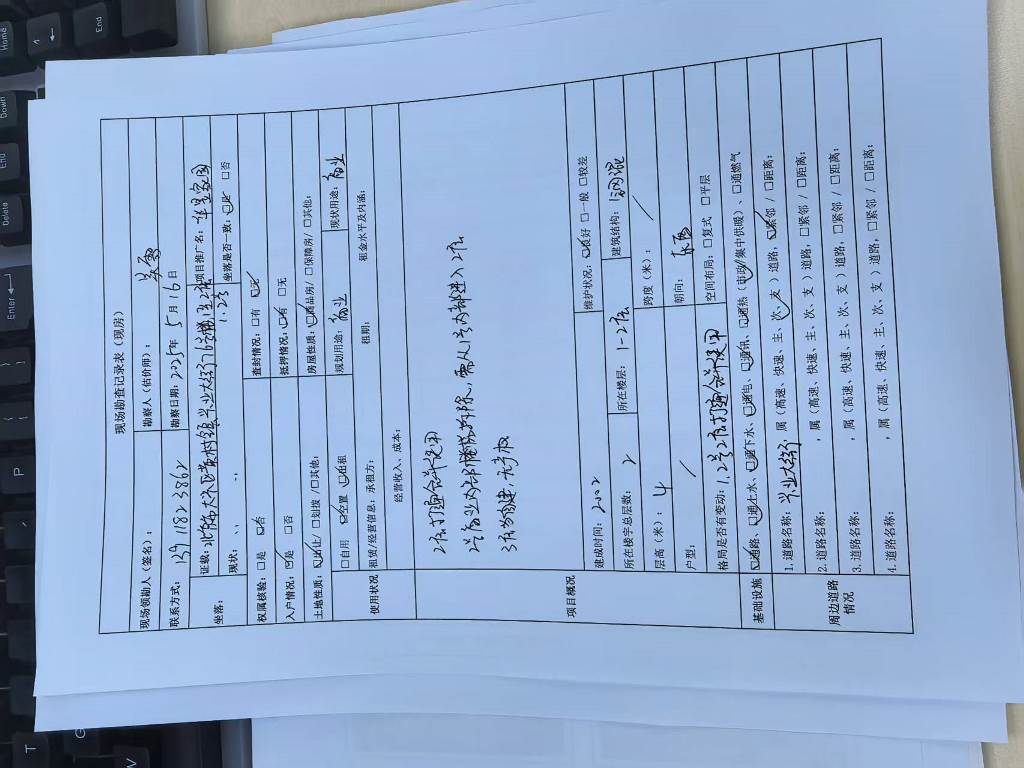 现场勘查记录表（现房）
现场领勘人（签名）： 勘察人（估价师）：
联系方式：139 1182 3862 勘察日期：2025年 5月 16日
坐落： 证载：北京市大兴区黄村镇兴业大街 项目推广名：华星家园
1.2号
现状： 坐落是否一致：☑是 □否
权属核验：□是 ☑否 查封情况：□有 ☑无
入户情况：☑是 □否 抵押情况：☑有 □无
土地性质：☑出让/□划拨 /□其他： 房屋性质：☑商品房/ □保障房/ □其他：
使用状况 □自用 ☑空置 ☑出租 规划用途：商业 现状用途：商业
租赁/经营信息：承租方： 租期： 租金水平及内涵：
经营收入、成本：
项目概况
2层打通合并使用
2号商业对外楼梯拆除，需从1号内部进入2层
3层为自建，无产权
建成时间：2002 维护状况：☑良好 □一般 □较差
所在楼宇总层数：2 所在楼层：1-2层 建筑结构：钢混
层高（米）：4 跨度（米）：/
户型：/ 朝向：东西
格局是否有变动：1.2号2层打通合并使用 空间布局：□复式 □平层
基础设施 ☑通路、☑通上水、☑通下水、☑通电、☑通信、☑通热（市政/集中供暖）、□通燃气
周边道路情况
1. 道路名称：兴业大街 ，属（高速、快速、主、次、支）道路，☑紧邻 / □距离：
2. 道路名称： ，属（高速、快速、主、次、支）道路，□紧邻 / □距离：
3. 道路名称： ，属（高速、快速、主、次、支）道路，□紧邻 / □距离：
4. 道路名称： ，属（高速、快速、主、次、支）道路，□紧邻 / □距离：
Home
End
Down
End
Delete
Enter
P
T
G
V